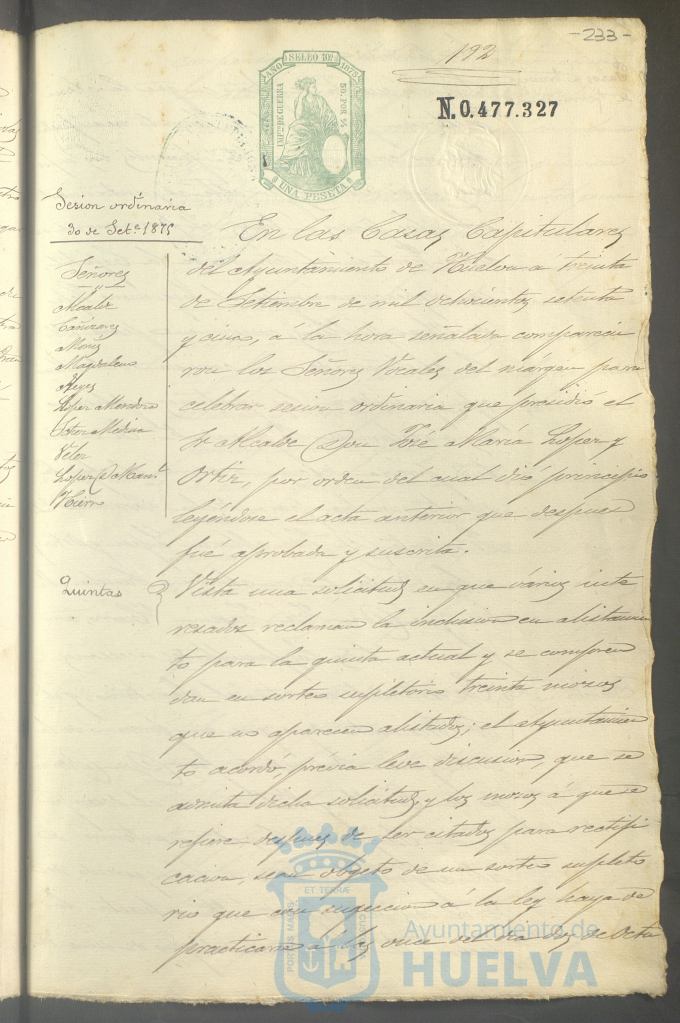 -233-
192
AÑO SELLO 10º 1875
IMPTO DE GUERRA
50 POR %
UNA PESETA
N. 0.477.327
Sesion ordinaria
30 de Set.e 1875
Señores
Alcalde
Cañizares
Muñiz
Magdaleno
Reyes
Lopez Mendoza
Medina
Velez
Lopez D. Man.l
Hierro
En las Casas Capitulares
del Ayuntamiento de Huelva á treinta
de Setiembre de mil ochocientos setenta
y cinco, á la hora señalada comparecie
ron los Señores Vocales del márgen para
celebrar sesion ordinaria que presidió el
Sr Alcalde Don José Maria Lopez y
Ortiz, por orden del cual dió principio
leyéndose el acta anterior que despues
fué aprobada y suscrita.
Quintas
Vista una solicitud en que vários inte
resados reclaman la inclusion en alistamien
to para la quinta actual y se compren
dan en sorteo supletorio treinta mozos
que no aparecen alistados; el Ayuntamien
to acordó, prévia leve discusion, que se
admita dicha solicitud y los mozos á que se
refiere despues de ser citados para rectifi
cacion, sean objeto de un sorteo supleto
rio que con sugecion á la ley haya de
practicarse á las once del dia tres de Octu
PORTUS MARIS ET TERRÆ CUSTODIA
Ayuntamiento de
HUELVA